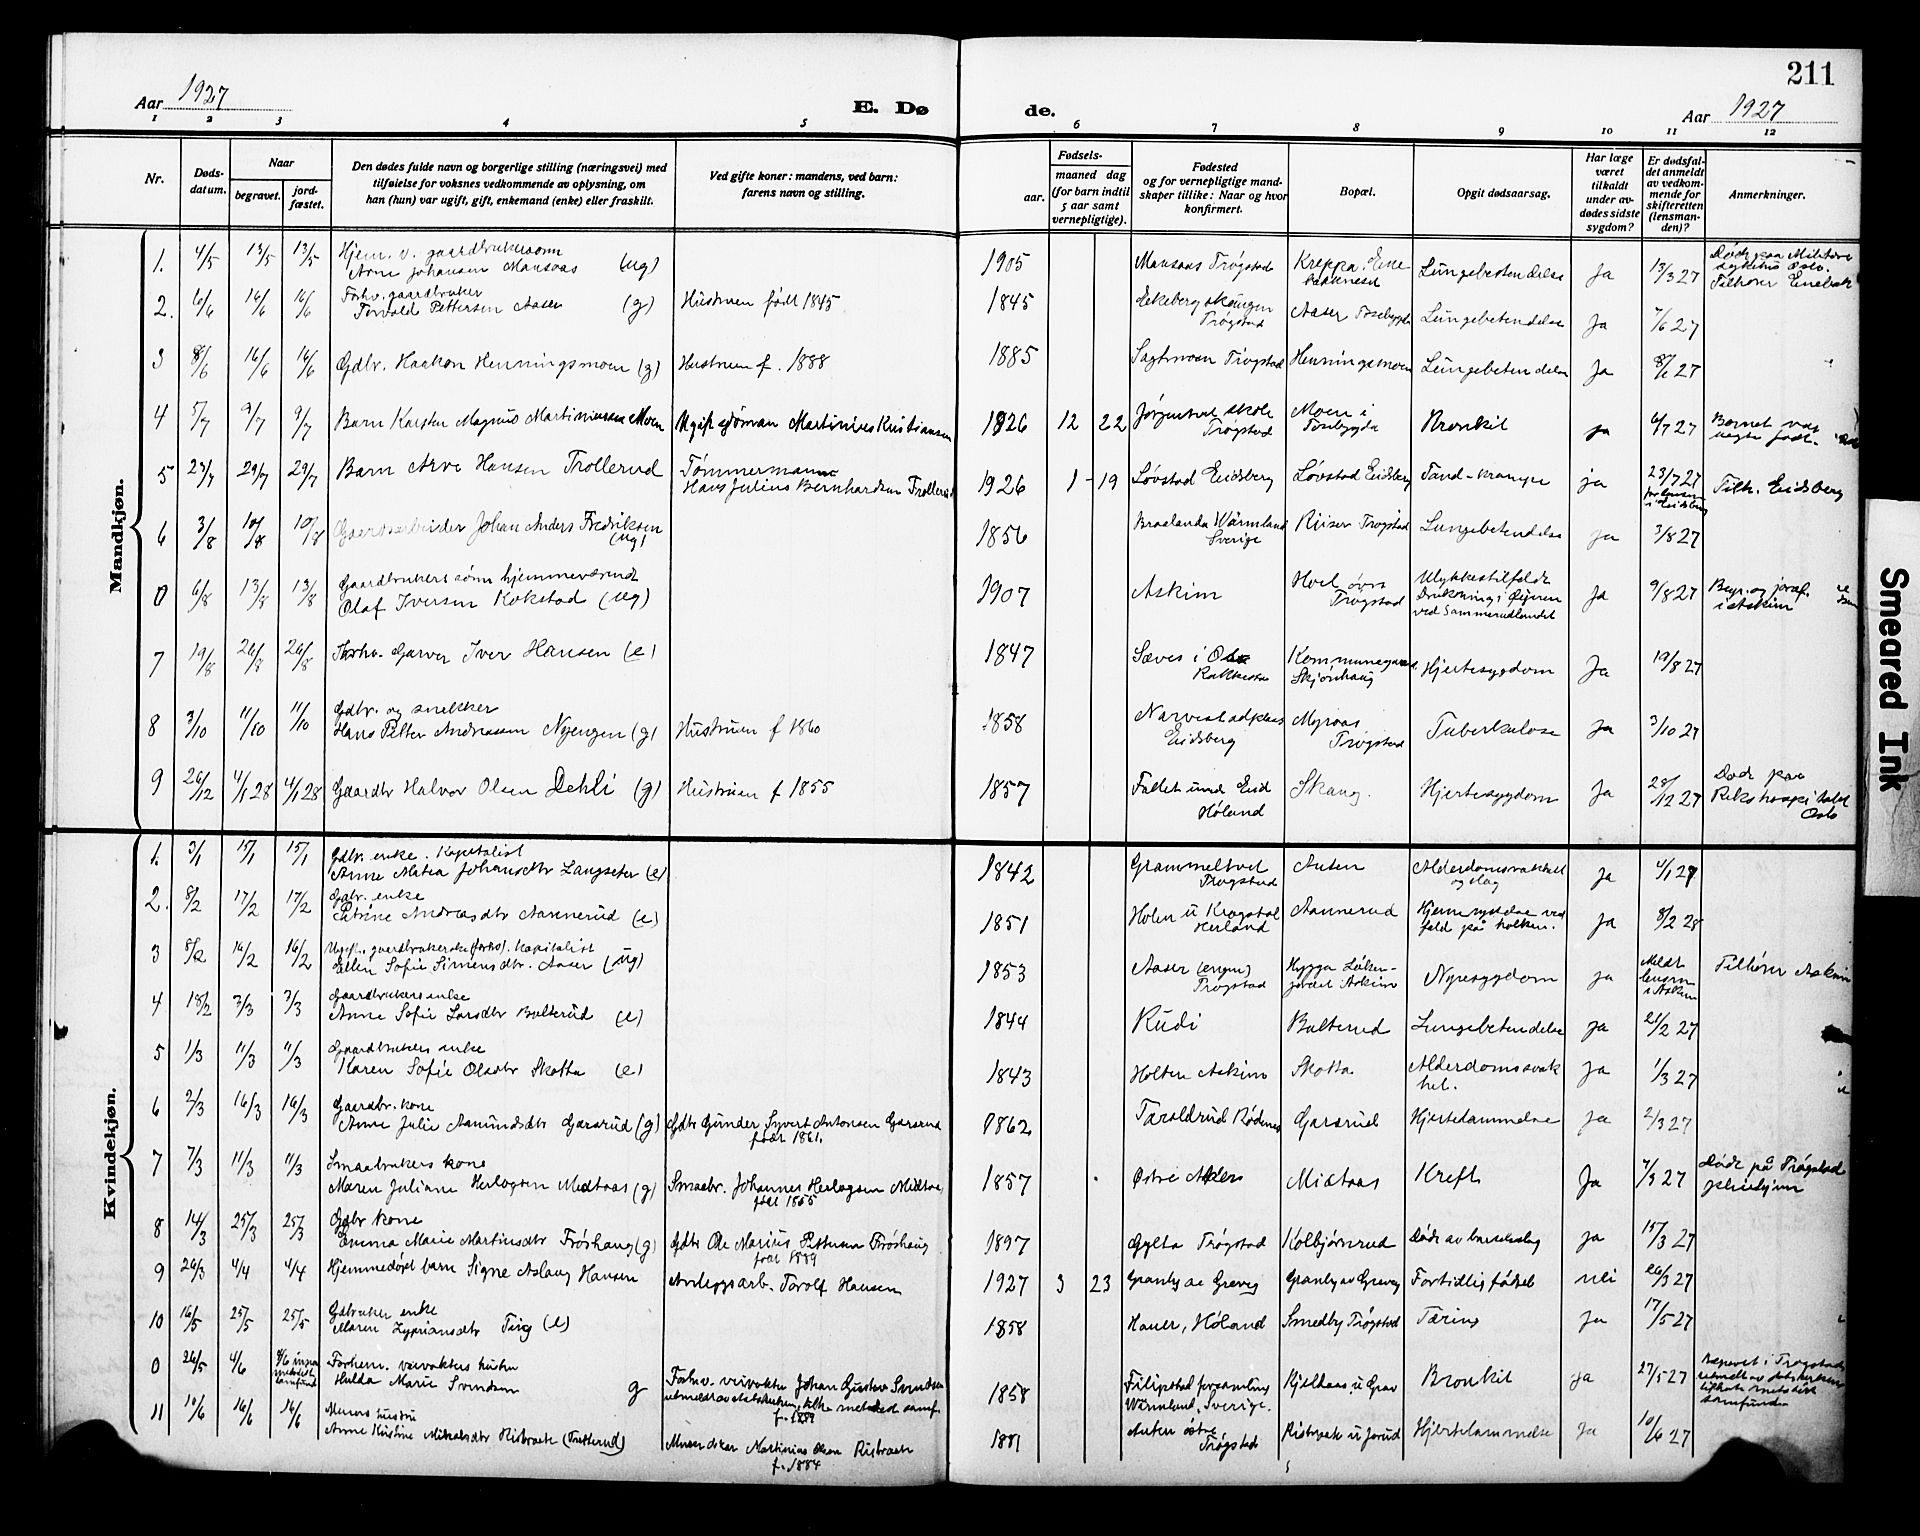 211
Aar 1927
E. Dø
de.
Aar 1927
1 2 3 4 5 6 7 8 9 10 11 12
Nr.
Døds-
datum.
Naar
begravet.
jord-
fæstet.
Den dødes fulde navn og borgerlige stilling (næringsvei) med
tilføielse for voksnes vedkommende av oplysning, om
han (hun) var ugift, gift, enkemand (enke) eller fraskilt.
Ved gifte koner: mandens, ved barn:
farens navn og stilling.
Fødsels-
aar.
maaned dag
(for barn indtil
5 aar samt
vernepligtige).
Fødested
og for vernepligtige mand-
skaper tillike: Naar og hvor
konfirmert.
Bopæl.
Opgit dødsaarsag.
Har læge
været
tilkaldt
under av-
dødes sidste
sygdom?
Er dødsfal-
det anmeldt
av vedkom-
mende for
skifteretten
(lensman-
den)?
Anmerkninger.
Mandkjøn.
1. 4/5 13/5 13/5 Hjem. v. gaardbrukersønn
Arne Johansen Mansaas (ug) 1905 Mansaas Trøgstad Kreppa. Ene
bakknesset Lungebetendelse Ja 13/3 27 Døde paa Militære
sykehus Oslo.
Tilhører Enebak
2. 6/6 16/6 16/6 Forhv. gaardbruker
Torvald Pettersen Aaser (g) Hustruen født 1845 1845 Ekeberg skaugen
Trøgstad Aaser Tosebygda Lungebetendelse Ja 7/6 27
3 8/6 16/6 16/6 Gdbr. Haakon Henningsmoen (g) Hustruen f. 1888 1885 Sagtmoen Trøgstad Henningsmoen Lungebetendelse Ja 8/6 27
4 5/7 9/7 9/7 Barn Karsten Magnus Martiniussen Moen Ugift sjømann Martinius Kristiansen 1926 12 22 Jørgentvet skole
Trøgstad Moen i
Tosebygda Bronkit ja 6/7 27 Barnet var
uegte født.
5 23/7 29/7 29/7 Barn Arve Hansen Trollerud Tømmermann
Hans Julius Bernhardsen Trollerud 1926 1 19 Løvstad Eidsberg Løvstad Eidsberg Tand-krampe ja 23/7 27
i Eidsberg Tilh. Eidsberg
6 3/8 10/8 10/8 Gaardsarbeider Johan Anders Fredriksen
(ug) 1856 Braelanda Wärmland
Sverige Riiser Trøgstad Lungebetendelse ja 3/8 27
0 6/8 13/8 13/8 Gaardbrukers sønn hjemmeværende
Olaf Iversen Kokstad (ug) 1907 Askim Hoel øvre
Trøgstad Ulykkestilfelde
Drukning i Øyeren
ved Sammerudlandet Ja 9/8 27 Begr. og jordf.
i Askim
7 19/8 26/8 26/8 Forhv. Garver Iver Hansen (e) 1847 Sæves i
Rakkestad Kommunegaard.
Skjønhaug Hjertesygdom Ja 19/8 27
8 3/10 11/10 11/10 Gdbr. og snekker
Hans Petter Andreassen Nyengen (g) Hustruen f 1860 1858 Narvestadplass
Eidsberg Myraas
Trøgstad Tuberkulose Ja 3/10 27
9 26/12 4/1 28 4/1 28 Gaardbr Halvor Olsen Dehli (g) Hustruen f 1855 1857 Fallet und Eid
Høland Skaug. Hjertesygdom Ja 28/12 27 Døde paa
Rikshospitalet
Oslo
Kvindekjøn.
1. 3/1 15/1 15/1 Gdbr. enke. Kapitalist
Anne Matea Johansdtr Langseter (e) 1842 Grammeltvet
Trøgstad Auten Alderdomssvakhet
og slag Ja 4/1 27
2. 8/2 17/2 17/2 Gdbr. enke
Petrine Andreasdtr Aannerud (e) 1851 Holen u Kragstol
Herland Aannerud Hjernerystelse ved
fald på holken. Ja 8/2 28
3 5/2 16/2 16/2 Ugift. gaardbrukerske (forhv). Kapitalist
Ellen Sofie Simensdtr. Aaser (ug) 1853 Aaser (engen)
Trøgstad Hygga Løken-
Askim Nyresygdom ja Meldt
lensm
i Askim Tilhører Askim
4 18/2 3/3 3/3 Gaardbrukers enke
Anne Sofie Larsdtr Bulterud (e) 1844 Rudi Bulterud Lungebetendelse ja 21/2 27
5 1/3 11/3 11/3 Gaardbrukers enke
Karen Sofie Olsdtr Skotta (e) 1843 Holten Askim Skotta Alderdomssvak
het. ja 1/3 27
6 2/3 16/3 16/3 Gaardbr. kone
Anne Julie Aamundsdtr Garsrud (g) Gdbr Gunder Syvert Antonsen Garsrud
født 1861. 1862 Taraldrud Rødenes Garsrud Hjertelammelse Ja 2/3 27
7 7/3 11/3 11/3 Smaabrukers kone
Maren Juliane Herlogsen Midtaas (g) Smaabr. Johannes Herlogsen Midtaas
født 1855 1857 Østre Aker Midtaas Kreft Ja 7/3 27 Døde på Trøgstad
pleiehjem
8 14/3 25/3 25/3 Gdbr kone
Emma Marie Martinsdtr Frøshaug (g) Gdbr Ole Marius Pettersen Frøshaug
født 1889 1897 Gylta Trøgstad Kolbjørnrud Døde av barselslag Ja 15/3 27
9 26/3 4/4 4/4 Hjemmedøpt barn Signe Aslaug Hansen Anleggsarb. Torolf Hansen 1927 3 23 Granby av Greveg Granby av Greveg Fortidlig fødsel nei 26/3 27
10 16/5 25/5 25/5 Gdbruker enke
Maren Zypriansdtr Ting (e) 1858 Hauer, Høland Smedby Trøgstad Tæring Ja 17/5 27
0 26/5 4/6 4/6 Forhem. veivokters hustru
Hulda Marie Svendsen g Forhv. veivokter Johan Gustav Svendsen
utmeldt av statskirken, tilh. metodistsamf.
f. 1859 1858 Filipstad forsamling
Wermland, Sverige. Kjeldaas u Grav Bronkit ja 27/5 27 Begravet i Trøgstad
utmeldt av statskirken
tilhør metodist
samfund.
11 10/6 16/6 16/6 Murers hustru
Anne Kristine Mikalsdtr Risbraate (Fratterud) Murer Martinius Olsen Risbraate
f. 1884 1881 Auten østre
Trøgstad Risbraate u Jorud Hjertelammelse Ja 10/6 27
Smeared Ink